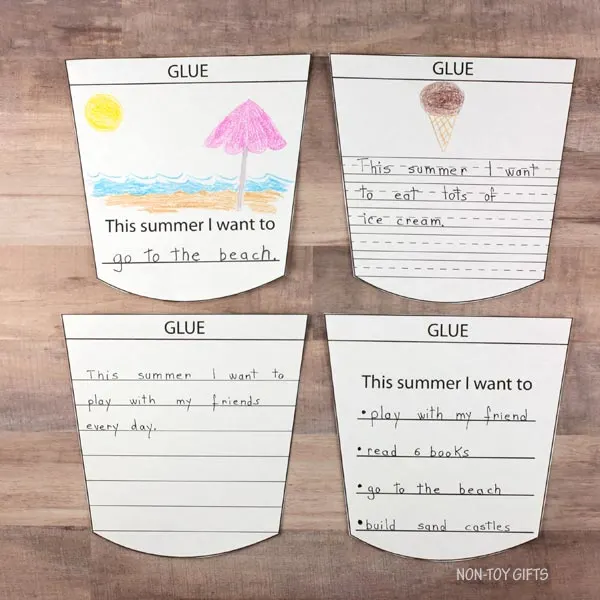 GLUE
This summer I want to
go to the beach.
GLUE
This summer I want
to eat lots of
ice cream.
GLUE
This summer I want to
play with my friends
every day.
GLUE
This summer I want to
• play with my friend
• read 6 books
• go to the beach
• build sand castles
NON-TOY GIFTS